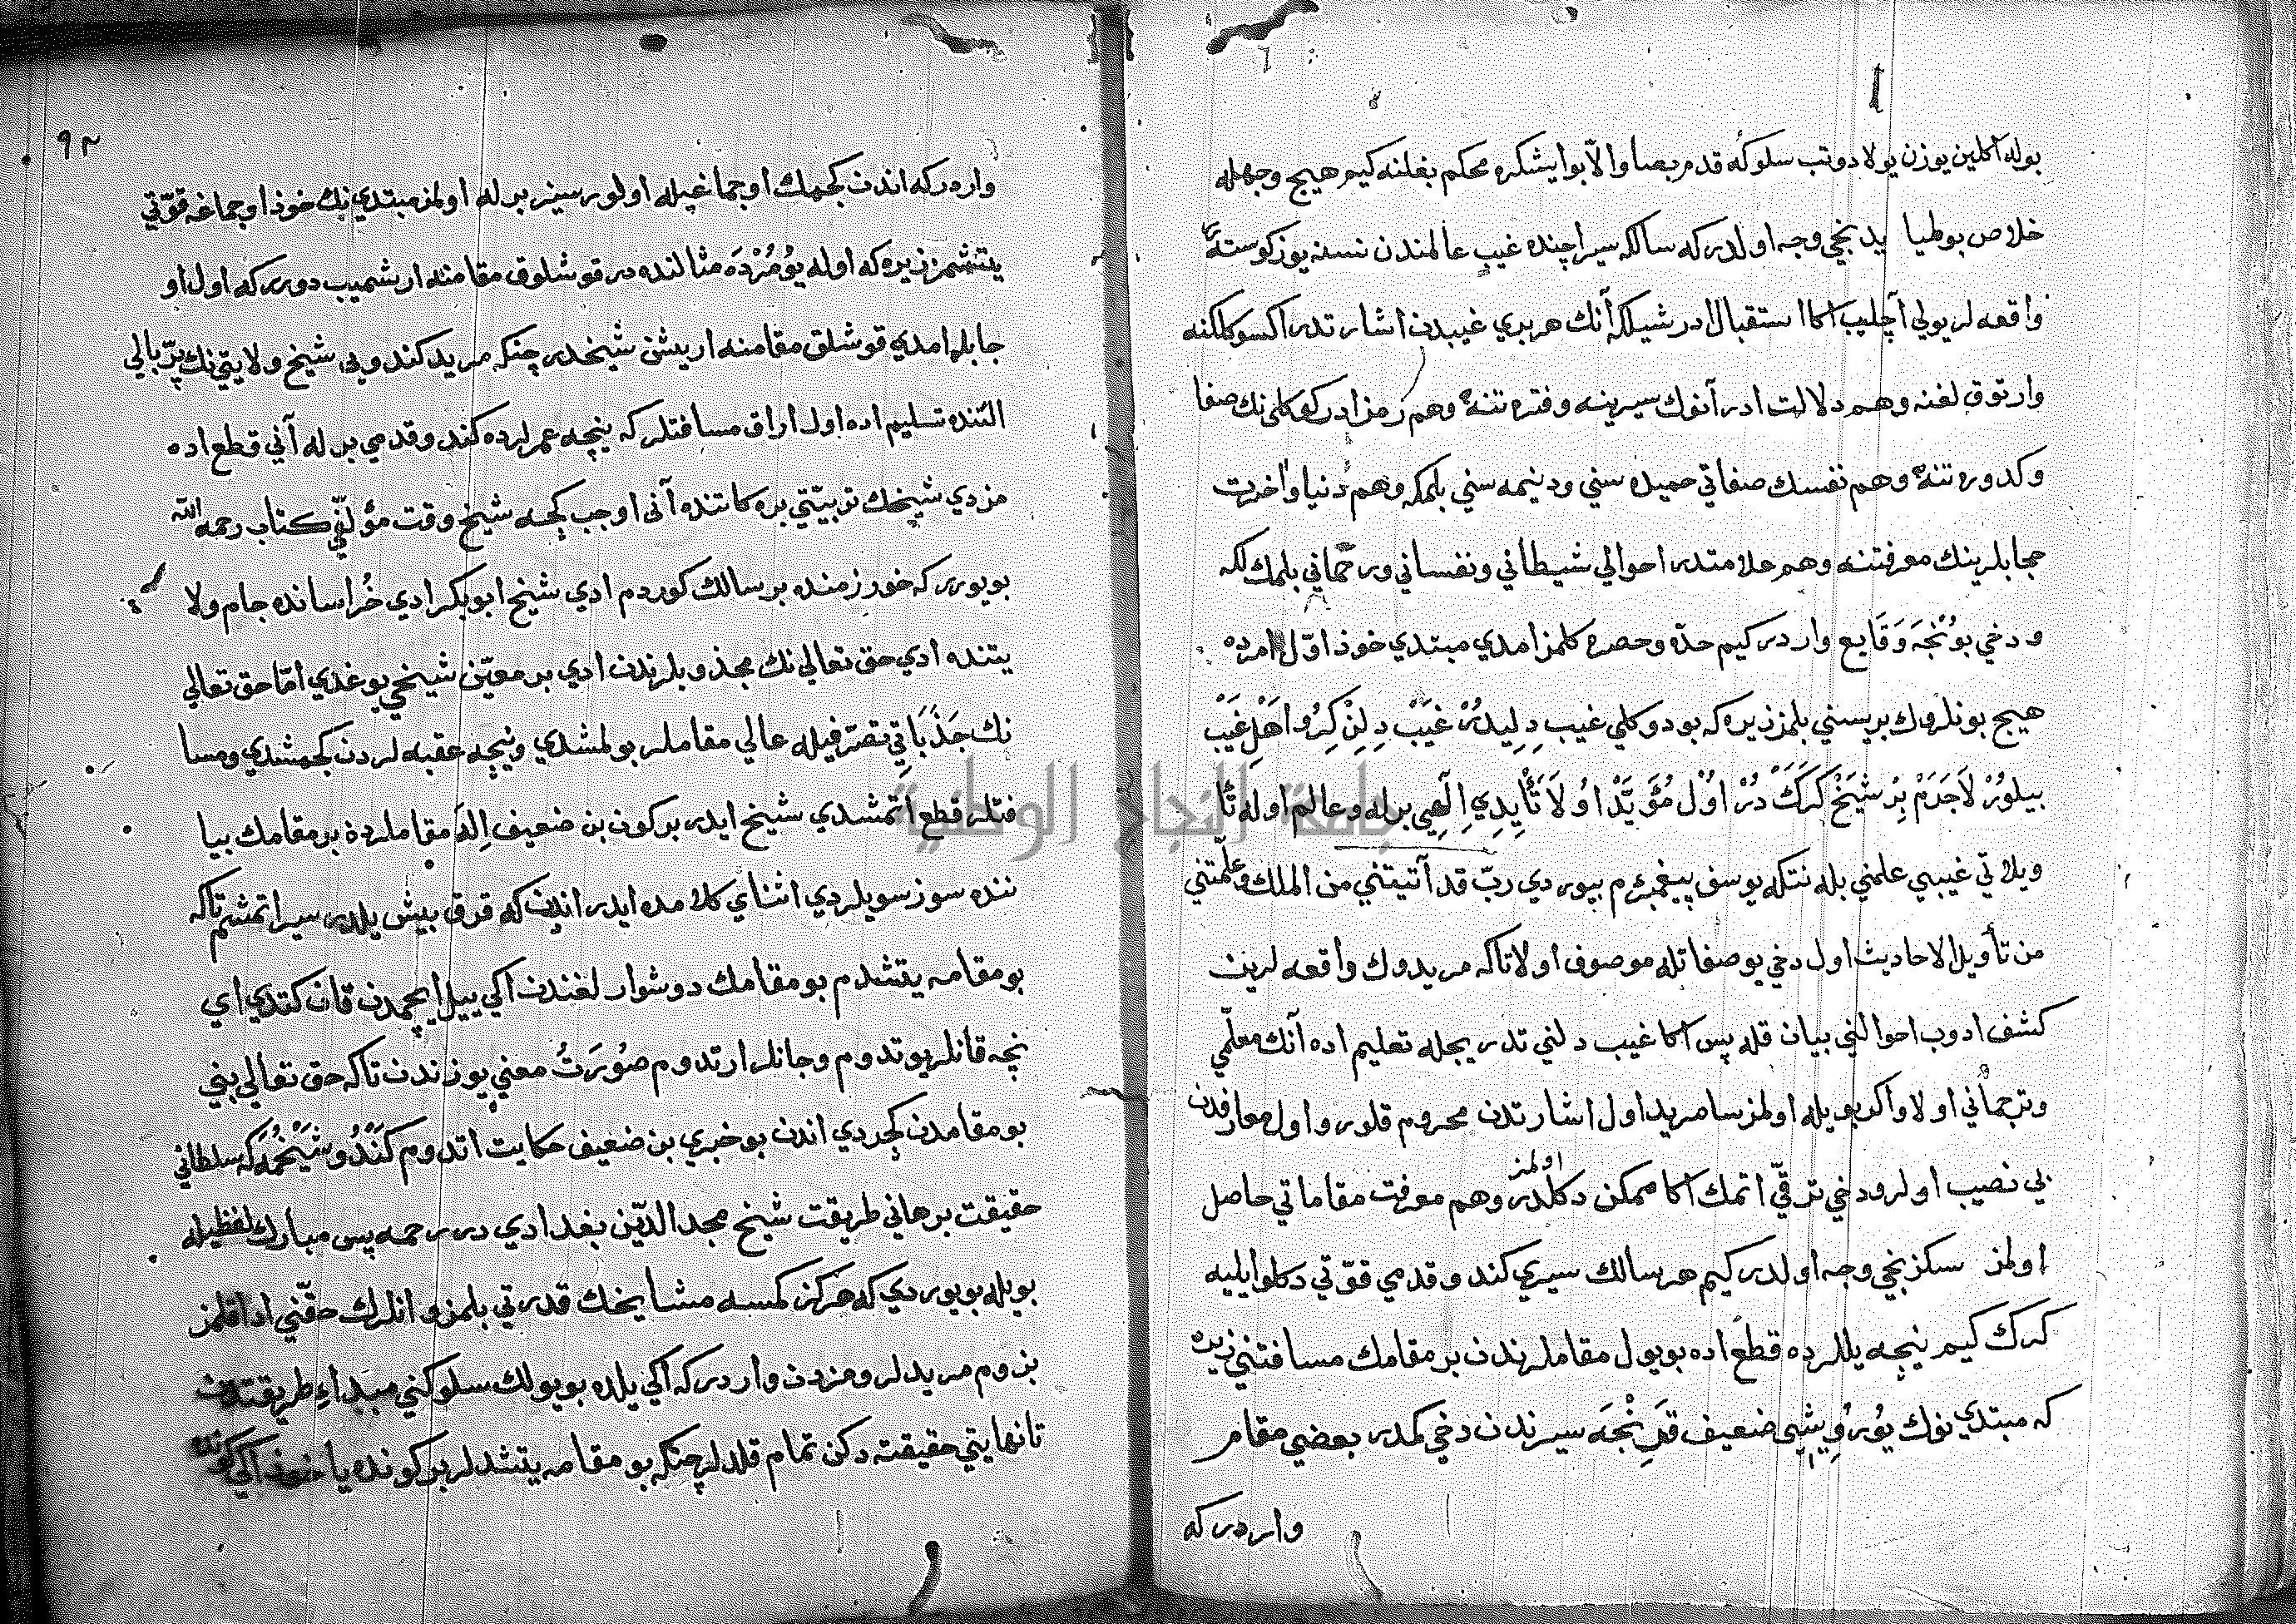 بوله آكلين يوزن يولا دوتب سلوكه قدم بصا والّا بوا يشكره محكم بغلنه كيم هيج وجهله
خلاص بولميا يدنجي وجه اولدر كه سالكه سير اچنده غيب عالمندن نسنه يوز كوستره
واقعه لر يولي آچلب اكا استقبال ادر شيلكه آنك هر بري غيبدن اشارتدر اكسوكلكنه
وارتوقلغنه وهم دلالت ادر آنوك سيرينه و فترتنه وهم رمز ادر كوكلي نك صفا
وكدورتنه وهم نفسك صفاتي حميده سني و دنيمه سني بلمكه وهم دنيا واخرت
حجابلرينك معرفتنه وهم علامتدر احوالي شيطاني ونفساني ورحماني بلمكلكه
ودخي بونجه وقايع واردر كيم حدّه وحصره كلمز امدي مبتدي خوذ اوّل امرده
هيج بونلروك بريسني بلمز زيره كه بو دوكلي غيب دليدر غيب دلن كرو اهل غيب
بيلور لاجرم بر شيخ كركدر اول مؤيّد اولا تأييدي الهي برله وعالم اوله تا
ويلاتي غيبي علمني بله نتكه يوسف پيغمبرم بيوردي ربّ قد آتيتني من الملك وعلّمتني
من تأويل الاحاديث اول دخي بو صفاتله موصوف اولا تاكه مريدوك واقعه لرين
كشف ادوب احوالني بيان قله پس اكا غيب دلني تدريجله تعليم اده آنك معلّمي
وترجماني اولا واكر بويله اولمز سا مريد اول اشارتدن محروم قلور واول معارفدن
بي نصيب اولر ودخي ترقّي اتمك اكا ممكن دكلدر اولمز وهم معرفت مقاماتي حاصل
اولمز سكزنجي وجه اولدر كيم هر سالك سيري كند و قدمي قوّتي دكلو ايليه
كرك كيم نيجه يللرده قطع اده بو يول مقاملرندن بر مقامك مسافتني زيره
كه مبتدي نوك يورويشي ضعيف قرنجه سيرندن دخي كمدر بعضي مقام
واردر كه
٩٢
واردر كه اندن كجمك اوجماغيله اولور سيزبرله اولمز مبتدي نك خوذ اوجماغه قوّتي
يتشمز زيره كه اوله يومرده مثالنده در قوشلوق مقامنه ارشميب دورر كه اول او
جابله امدي قوشلق مقامنه اريشن شيخدر چنكه مريد كندويي شيخ ولايتي نك پرّ بالي
التنده تسليم اده اول اراق مسافتلر كه نيچه عمرلرده كندو قدمي برله آني قطع اده
مزدي شيخك تربيّتي بره كاتنده آني اوجب كجه شيخ وقت مؤلفّي كتاب رحمه الله
بويورر كه خورزمنده بر سالك كوردم ادي شيخ ابو بكر ادي خراسانده جام ولا
يتنده ادي حق تعالي نك مجذوبلرندن ادي بر معيّن شيخي يوغدي امّا حق تعالي
نك جذباتي تصرّفيله عالي مقاملر بولمشدي ونيچه عقبه لردن كجمشدي ومسا
فتلر قطع اتمشدي شيخ ايدر بر كون بن ضعيف اله مقاملردة بر مقامك بيا
ننده سوز سويلردي اثناي كلامده ايدر اندن كه قرق بيش يلدر سير اتمشم تاكه
بو مقامه يتشدم بو مقامك دوشوارلغندن اكي ييل ايچمدن قان كتدي اي
نچه قانلر يوتدوم وجانلر ارتدوم صورت معني يوزندن تاكه حق تعالي بني
بو مقامدن كجردي اندن بو خبري بن ضعيف حكايت اتدوم كندو شيخمه كه سلطاني
حقيقت برهاني طريقت شيخ مجد الدّين بغدادي در رحمه پس مبارك لفظيله
بويله بويوردي كه هركز كمسه مشايخك قدرتي بلمز وانلرك حقّني ادا قلمز
بزوم مريدلرومزدن واردر كه اكي يلده بو يولك سلوكني مبداء طريقتدن
تا نهايتي حقيقته دكن تمام قلدلر چنكه بو مقامه يتشدلر بر كونده يا خوذ اكي كونده